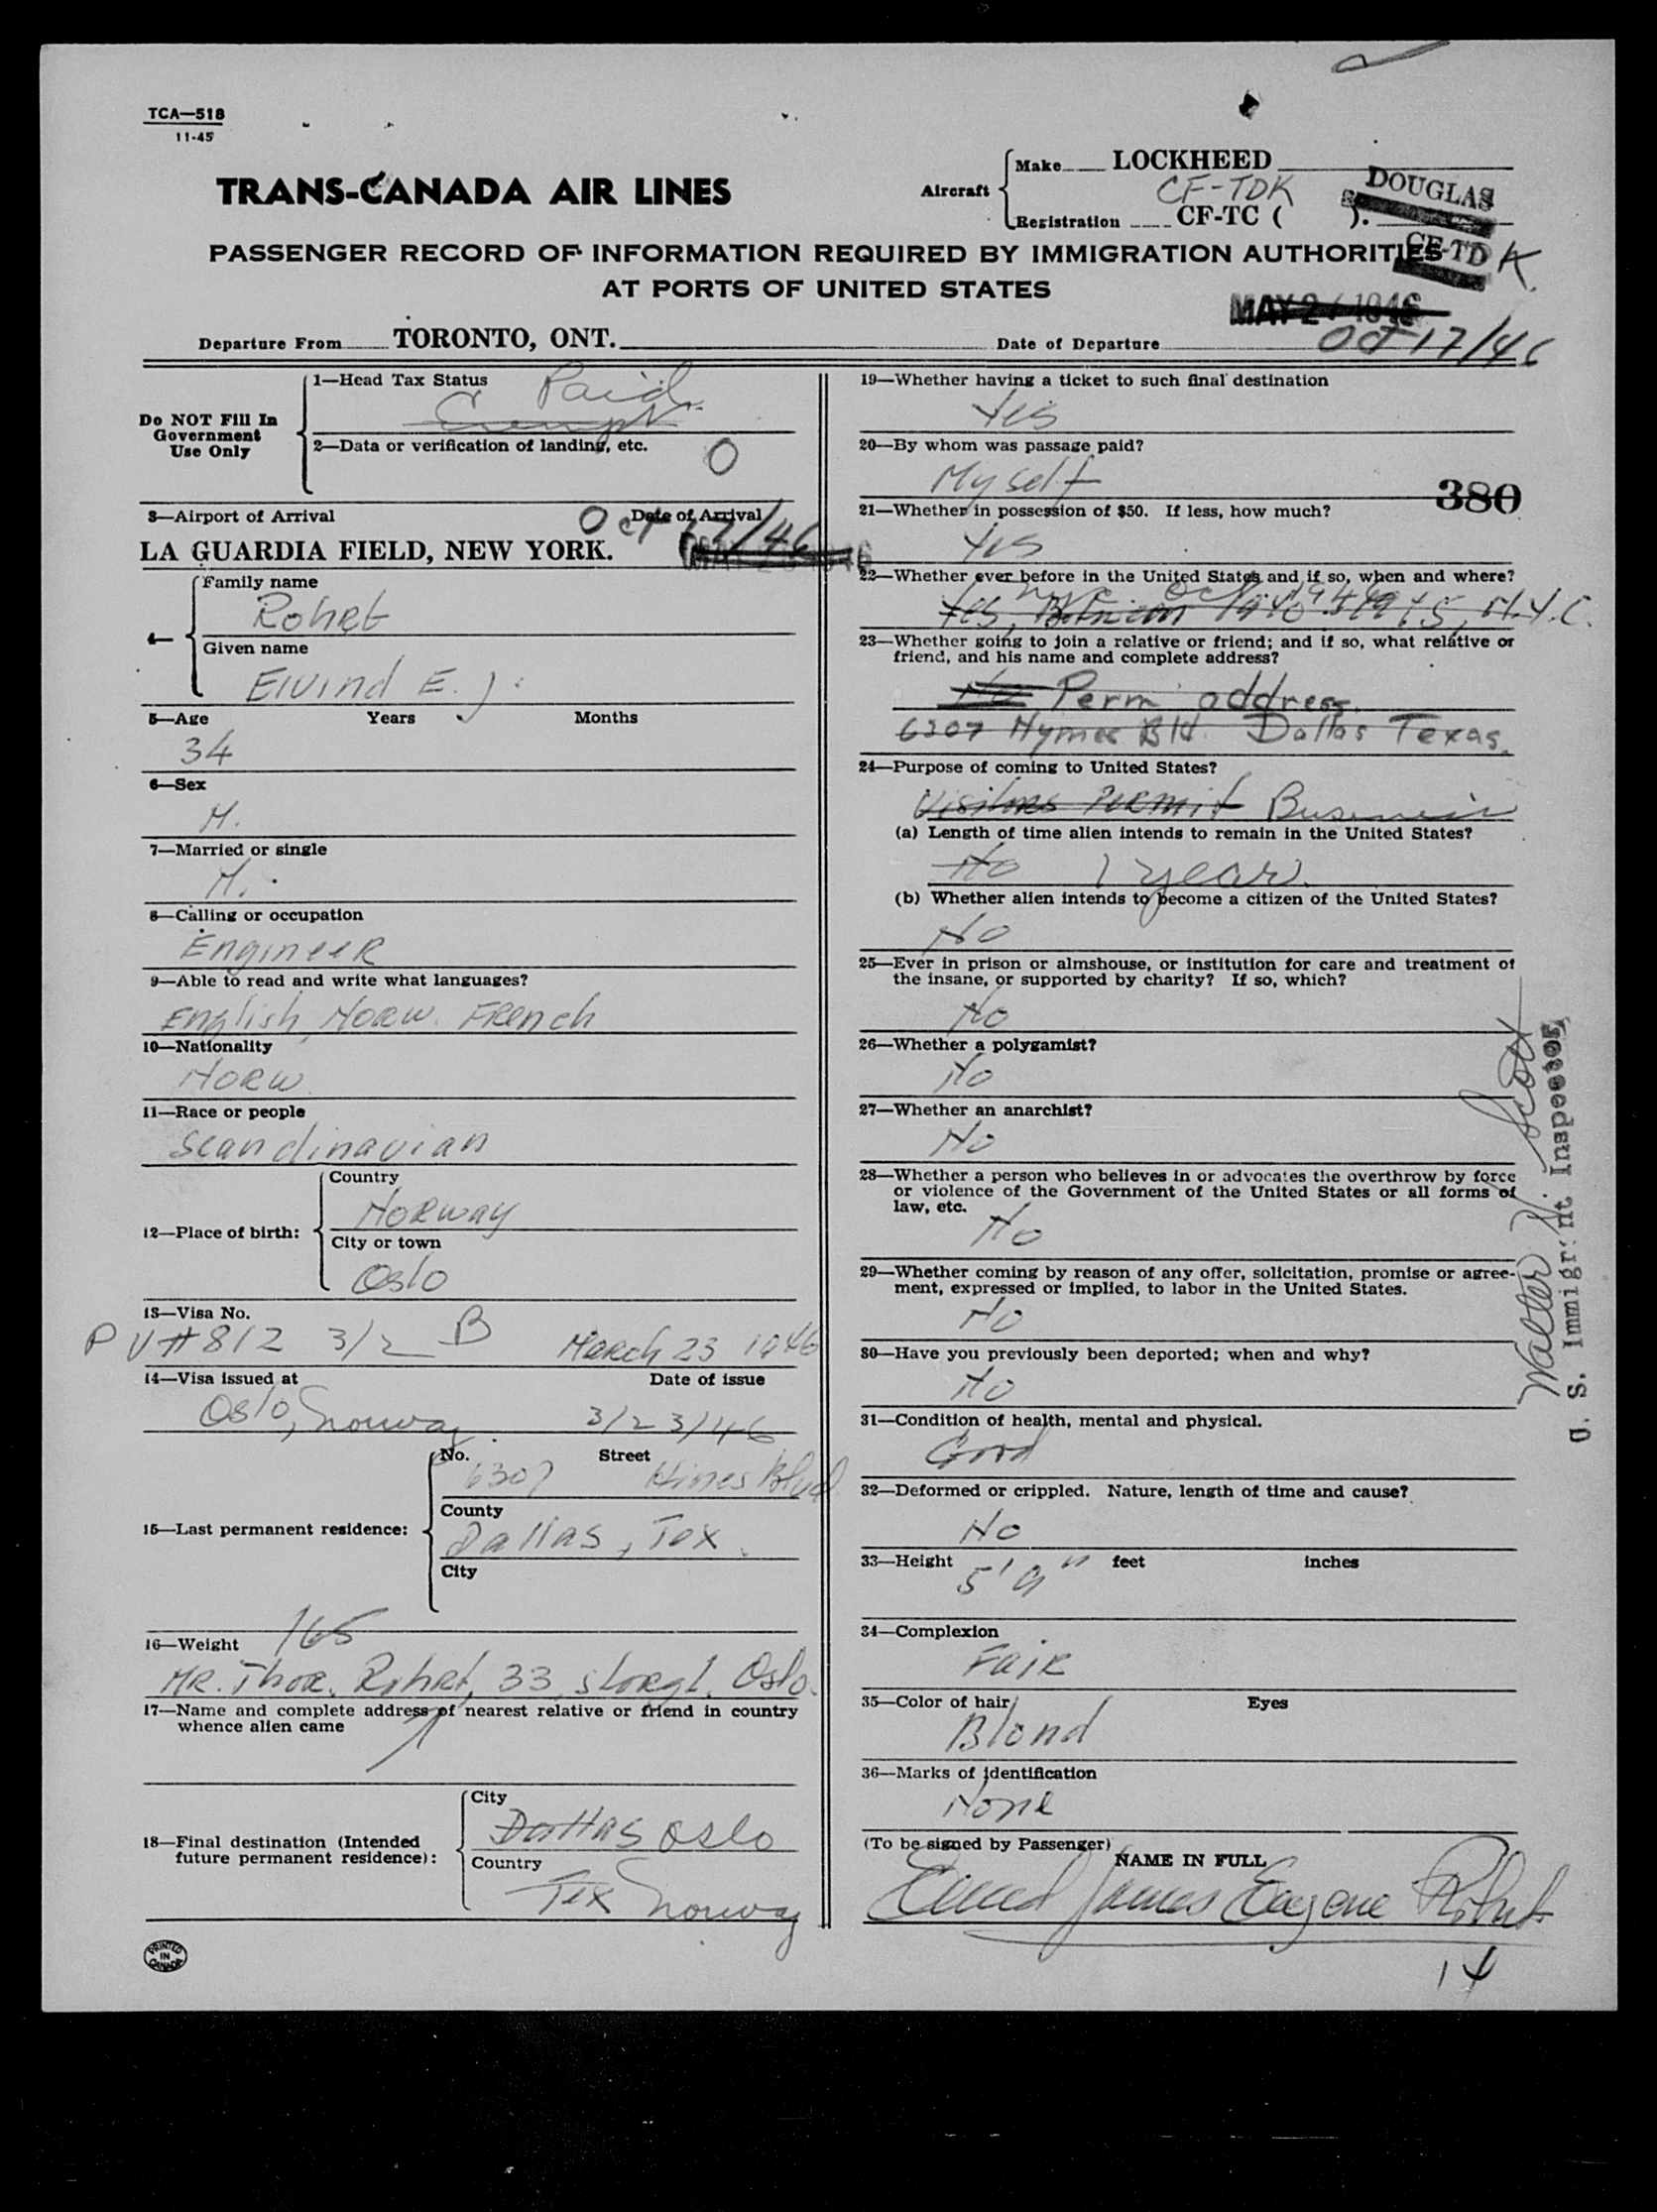 TCA—518
11-45
TRANS-CANADA AIR LINES
Aircraft
Make LOCKHEED
DOUGLAS
CF-TDK
Registration CF-TC ( ).
CF-TD K
PASSENGER RECORD OF INFORMATION REQUIRED BY IMMIGRATION AUTHORITIES
AT PORTS OF UNITED STATES
MAY 2 1946
Departure From TORONTO, ONT.
Date of Departure Oct 17/46
Do NOT Fill In
Government
Use Only
1—Head Tax Status Paid
Exempt
2—Data or verification of landing, etc. O
3—Airport of Arrival
Date of Arrival
Oct 17/46
LA GUARDIA FIELD, NEW YORK.
4—
Family name
Rohrt
Given name
Eivind E. J.
5—Age Years Months
34
6—Sex
M.
7—Married or single
M.
8—Calling or occupation
Engineer
9—Able to read and write what languages?
English, Norw. French
10—Nationality
Norw
11—Race or people
Scandinavian
12—Place of birth:
Country
Norway
City or town
Oslo
13—Visa No.
PV#812 3/2 B March 23 1946
14—Visa issued at Date of issue
Oslo, Norway 3/23/46
15—Last permanent residence:
No. Street
6307 Hines Blvd
County
Dallas, Tex.
City
16—Weight 165
Mr. Thor. Rohrt, 33, Storgt. Oslo.
17—Name and complete address of nearest relative or friend in country
whence alien came
18—Final destination (Intended
future permanent residence):
City
Dallas Oslo
Country
Tex Norway
PRINTED
IN
CANADA
19—Whether having a ticket to such final destination
Yes
20—By whom was passage paid?
Myself
380
21—Whether in possession of $50. If less, how much?
Yes
22—Whether ever before in the United States and if so, when and where?
NYC Oct 1946
Yes, 1940 1945, N.Y.C.
23—Whether going to join a relative or friend; and if so, what relative or
friend, and his name and complete address?
No Perm address
6307 Hymes Bld. Dallas Texas.
24—Purpose of coming to United States?
Visitors Permit Business
(a) Length of time alien intends to remain in the United States?
No 1 year.
(b) Whether alien intends to become a citizen of the United States?
No
25—Ever in prison or almshouse, or institution for care and treatment of
the insane, or supported by charity? If so, which?
No
26—Whether a polygamist?
No
27—Whether an anarchist?
No
28—Whether a person who believes in or advocates the overthrow by force
or violence of the Government of the United States or all forms of
law, etc.
No
29—Whether coming by reason of any offer, solicitation, promise or agree-
ment, expressed or implied, to labor in the United States.
No
30—Have you previously been deported; when and why?
No
31—Condition of health, mental and physical.
Good
32—Deformed or crippled. Nature, length of time and cause?
No
33—Height feet inches
5'9"
34—Complexion
Fair
35—Color of hair Eyes
Blond
36—Marks of identification
None
(To be signed by Passenger)
NAME IN FULL
Eivind James Eugene Rohrt
14
Walter N. Scott
U. S. Immigrant Inspector